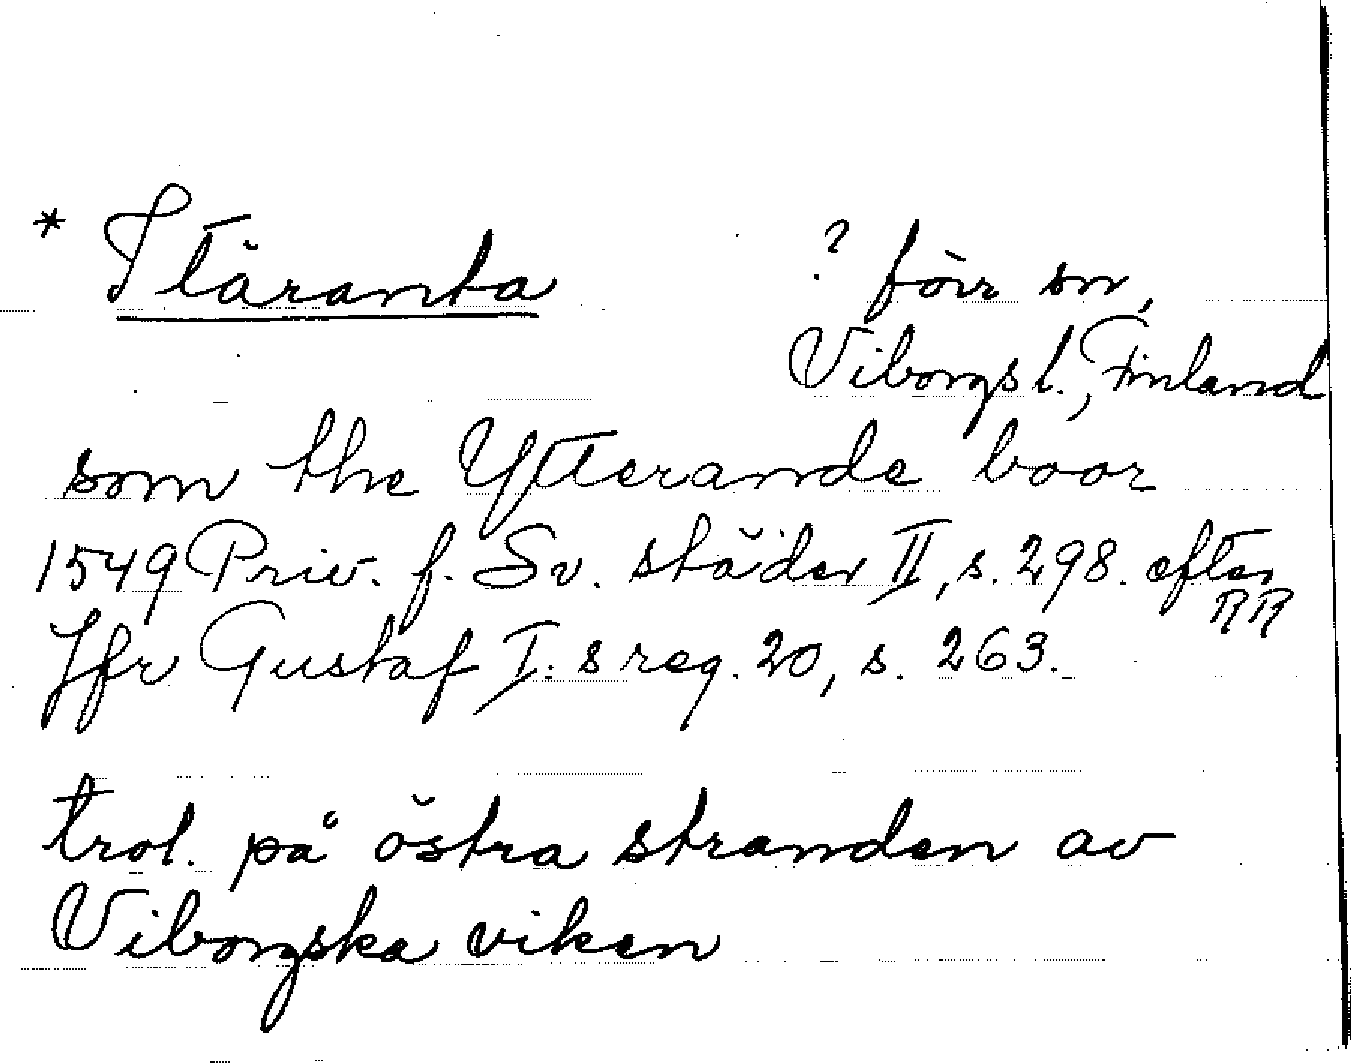 * Itäranta
? förr sn,
Viborgs l., Finland
som the Ytterande boor
1549 Priv. f. Sv. städer II, s. 298. efter
RR
Jfr Gustaf I:s reg. 20, s. 263.
trol. på östra stranden av
Viborgska viken